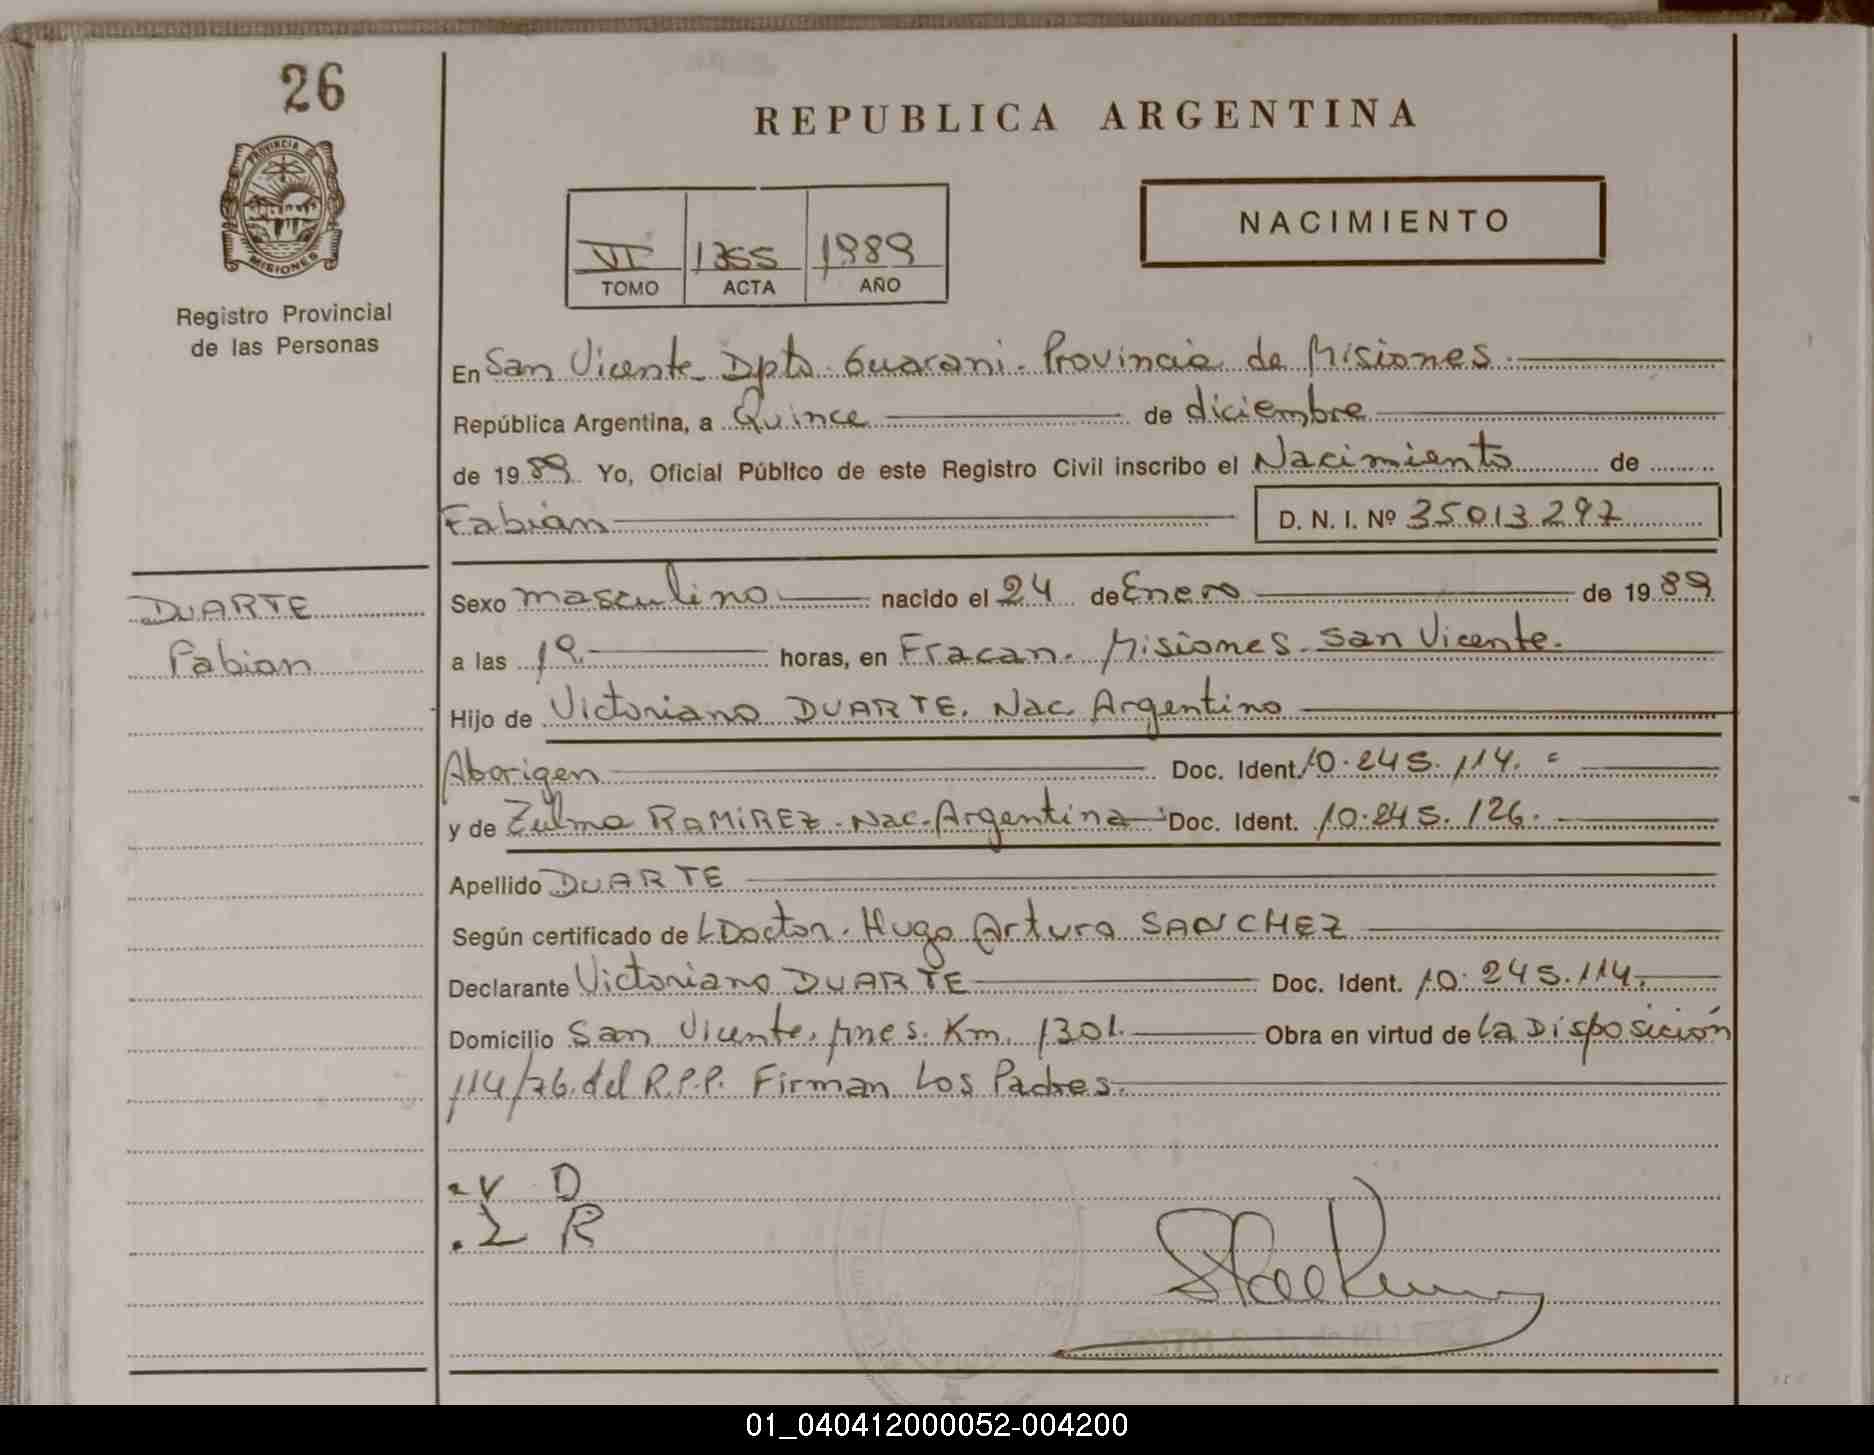 26
PROVINCIA DE
MISIONES
Registro Provincial
de las Personas
REPUBLICA ARGENTINA
NACIMIENTO
VI 1355 1989
TOMO ACTA AÑO
En San Vicente Dpto. Guarani. Provincia de Misiones
República Argentina, a Quince de diciembre
de 1989 Yo, Oficial Público de este Registro Civil inscribo el Nacimiento de
Fabián D. N. I. Nº 35013297
DUARTE
Fabian
Sexo masculino nacido el 24 de Enero de 1989
a las 19 horas, en Fracan. Misiones. San Vicente.
Hijo de Victoriano DUARTE. Nac. Argentino
Aborigen Doc. Ident. 10.245.114.
y de Zulma RAMIREZ. Nac. Argentina Doc. Ident. 10.245.126.
Apellido DUARTE
Según certificado de L Doctor. Hugo Arturo SANCHEZ
Declarante Victoriano DUARTE Doc. Ident. 10.245.114.
Domicilio San Vicente, mnes. Km. 1301. Obra en virtud de La Disposición
114/76. del R.P.P. Firman Los Padres.
V D
Z R
01_040412000052-004200